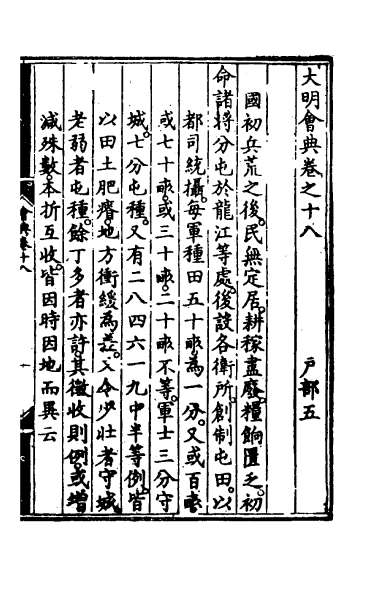 大明會典卷之十八 戶部五
國初兵荒之後民無定居耕稼盡廢糧餉匱乏初
命諸將分屯於龍江等處後設各衛所創制屯田以
都司統攝每軍種田五十畝為一分又或百畝
或七十畝或三十畝二十畝不等軍士三分守
城七分屯種又有二八四六一九中半等例皆
以田土肥瘠地方衝緩為差又令少壯者守城
老弱者屯種餘丁多者亦許其徵收則例或增
減殊數本折互收皆因時因地而異云
會典卷十八